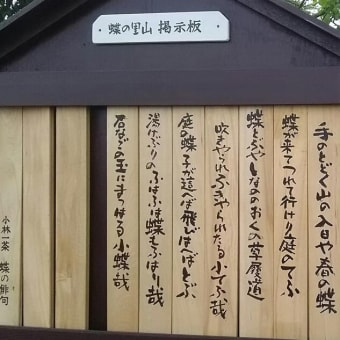 蝶の里山 掲示板
手のとどく山の入日や春の蝶
蝶が来てつれて行けり庭のてふ
蝶とぶやしなののおくの草履道
吹きやられふきやられたる小てふ哉
庭の蝶子が這へば飛びはへばとぶ
湯けぶりのふはふは蝶もふはり哉
石なごの玉にまつはる小蝶哉
小林一茶 蝶の俳句